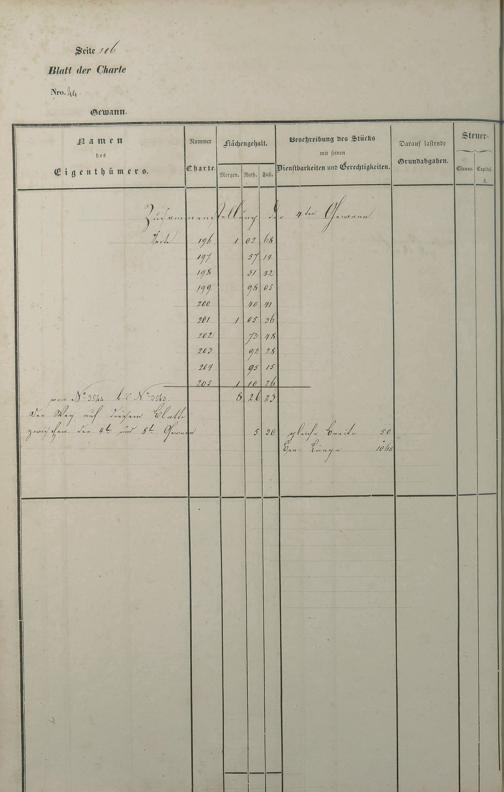 Seite 206
Blatt der Charte
Nro. 44.
Gewann.
Namen des Eigenthümers. Nummer Charte Flächengehalt. Morgen. Ruth. Fuß. Beschreibung des Stücks mit seinen Dienstbarkeiten und Gerechtigkeiten. Darauf lastende Grundabgaben. Steuer- Classe. Capital.
Zusammenstellung der 4ten Gewann
Seite 196 1 02 68
197 57 14
198 51 32
199 96 05
200 40 41
201 1 05 36
202 73 48
203 92 28
204 95 15
205 1 10 26
von No. 3544 bis No. 3563. 8 26 23
Der Weg auf diesem Blatte
zwischen der 4t. und 5t. Gewann 5 30 gleiche Breite 50
Länge 1060